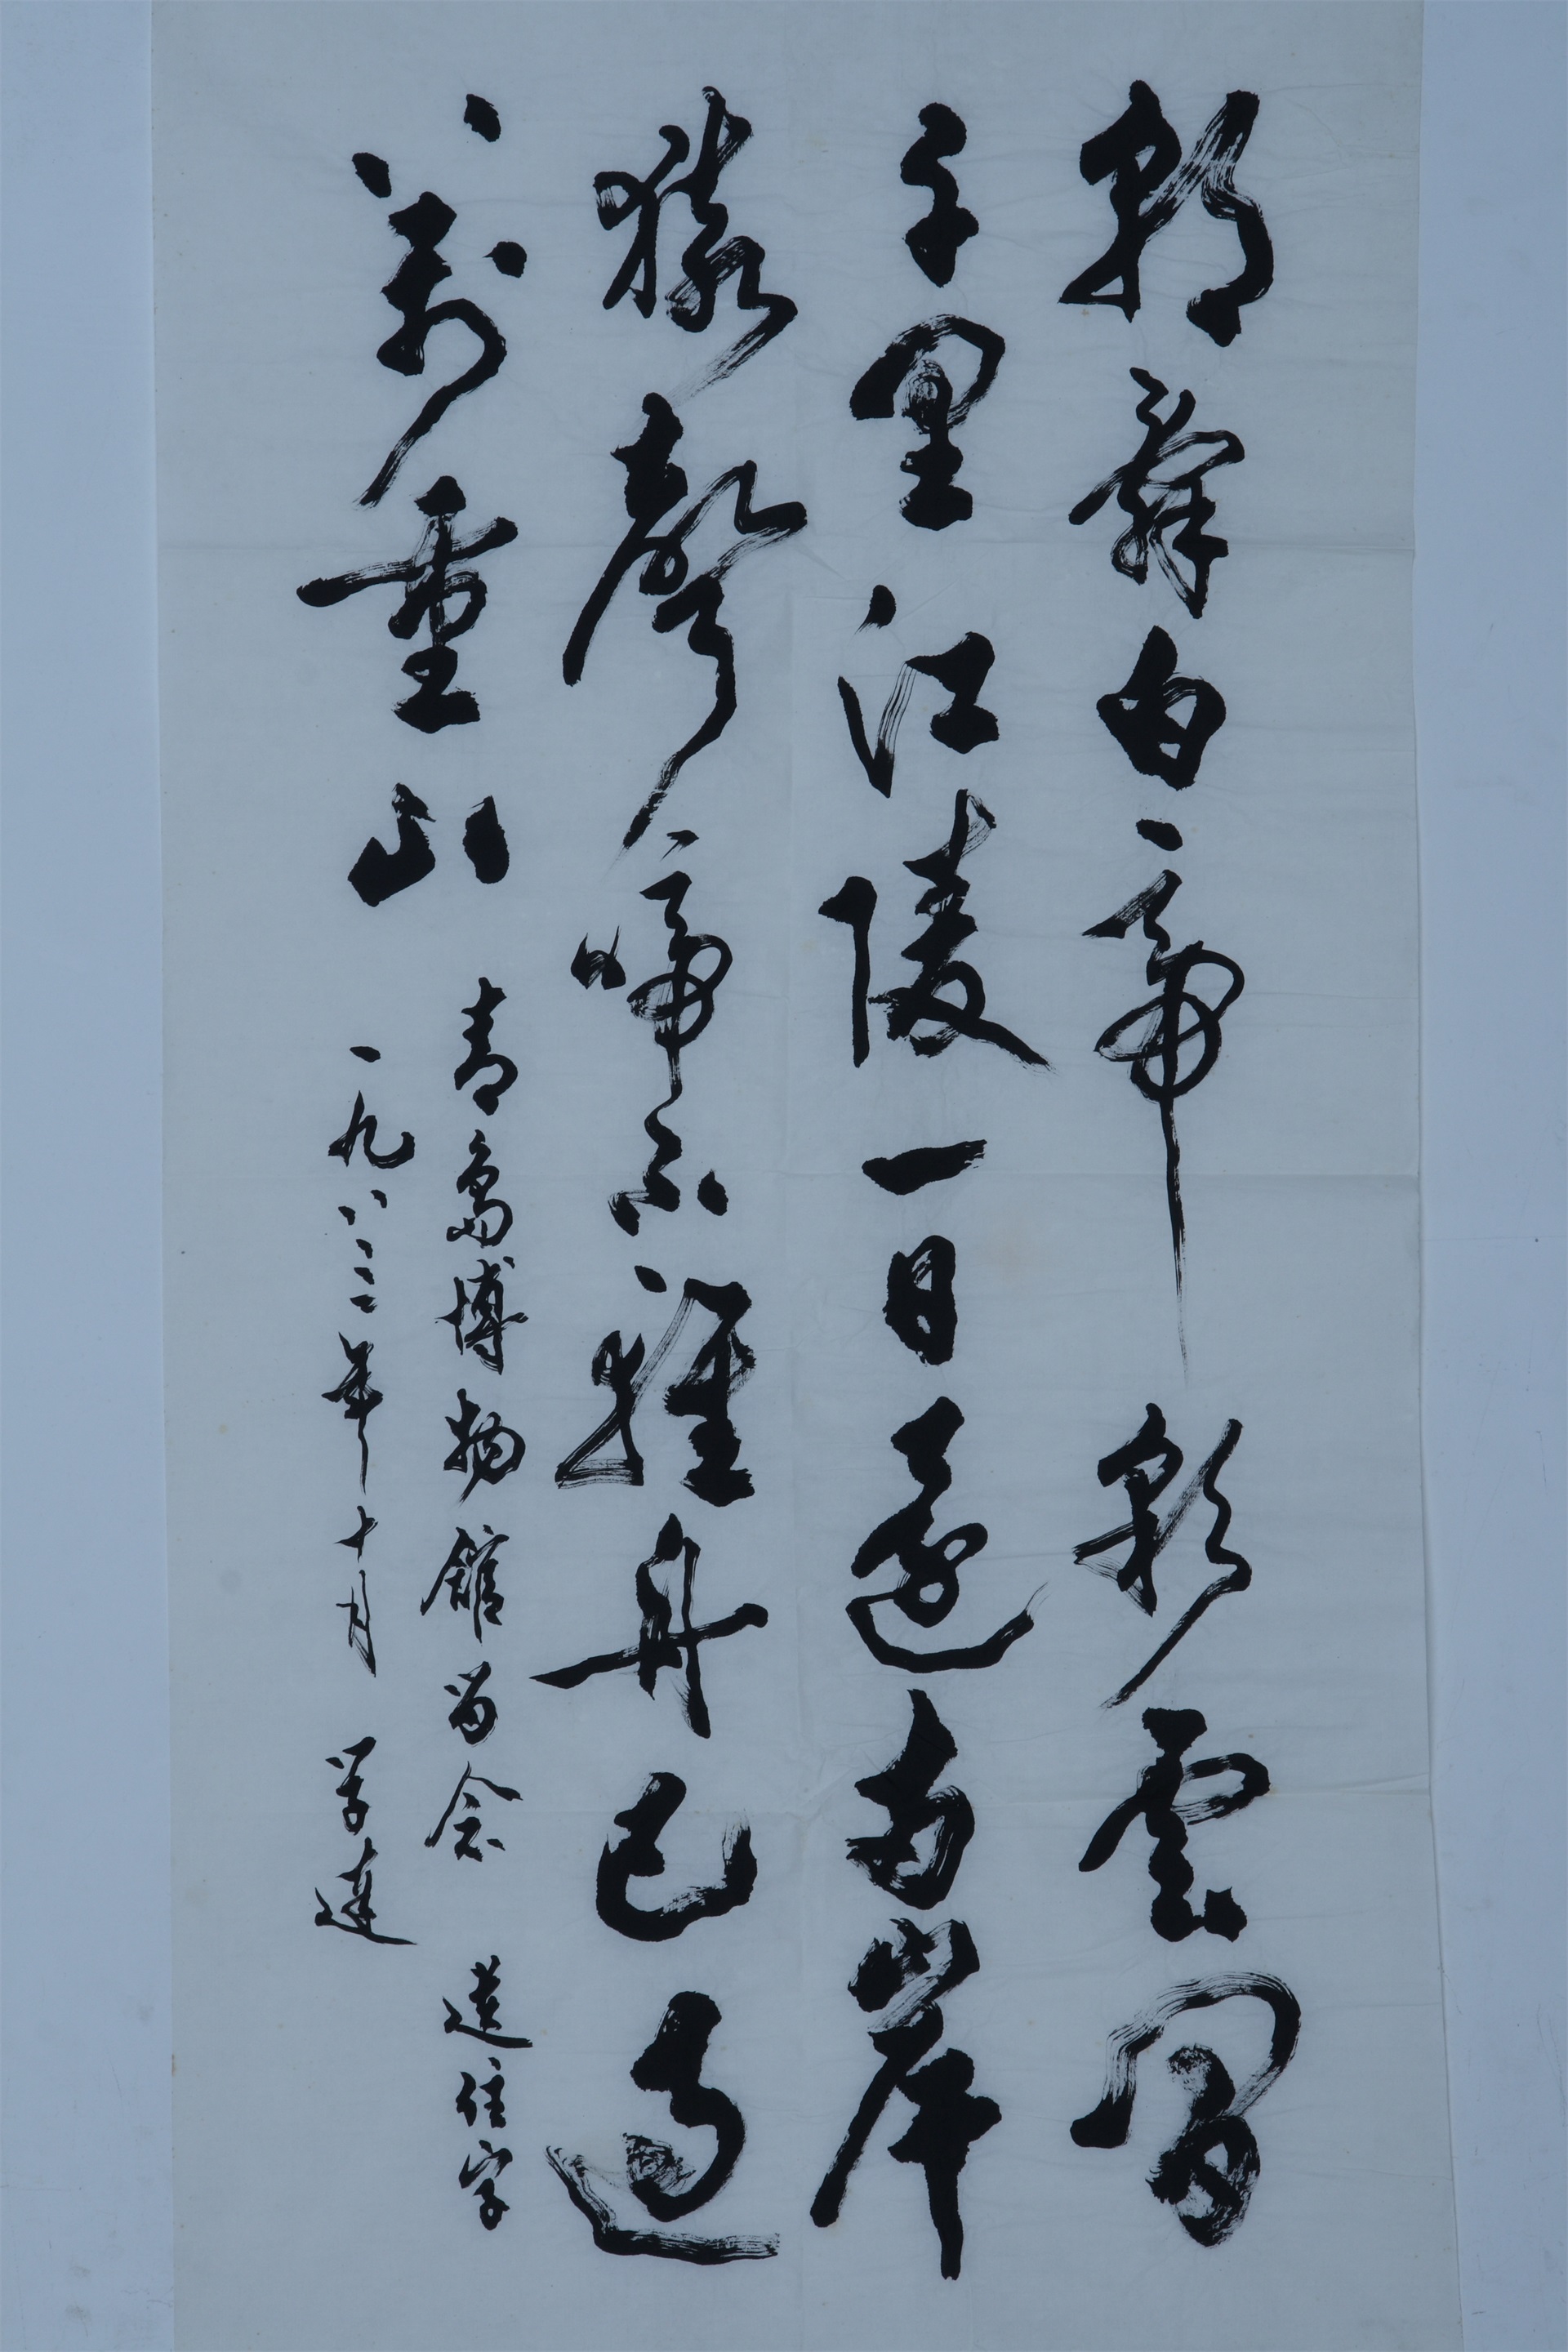 朝辭白帝彩雲間
千里江陵一日還兩岸
猿聲啼不輕舟已過
萬重山
青島博物館留念 遺住字
一九八三年十月 学達